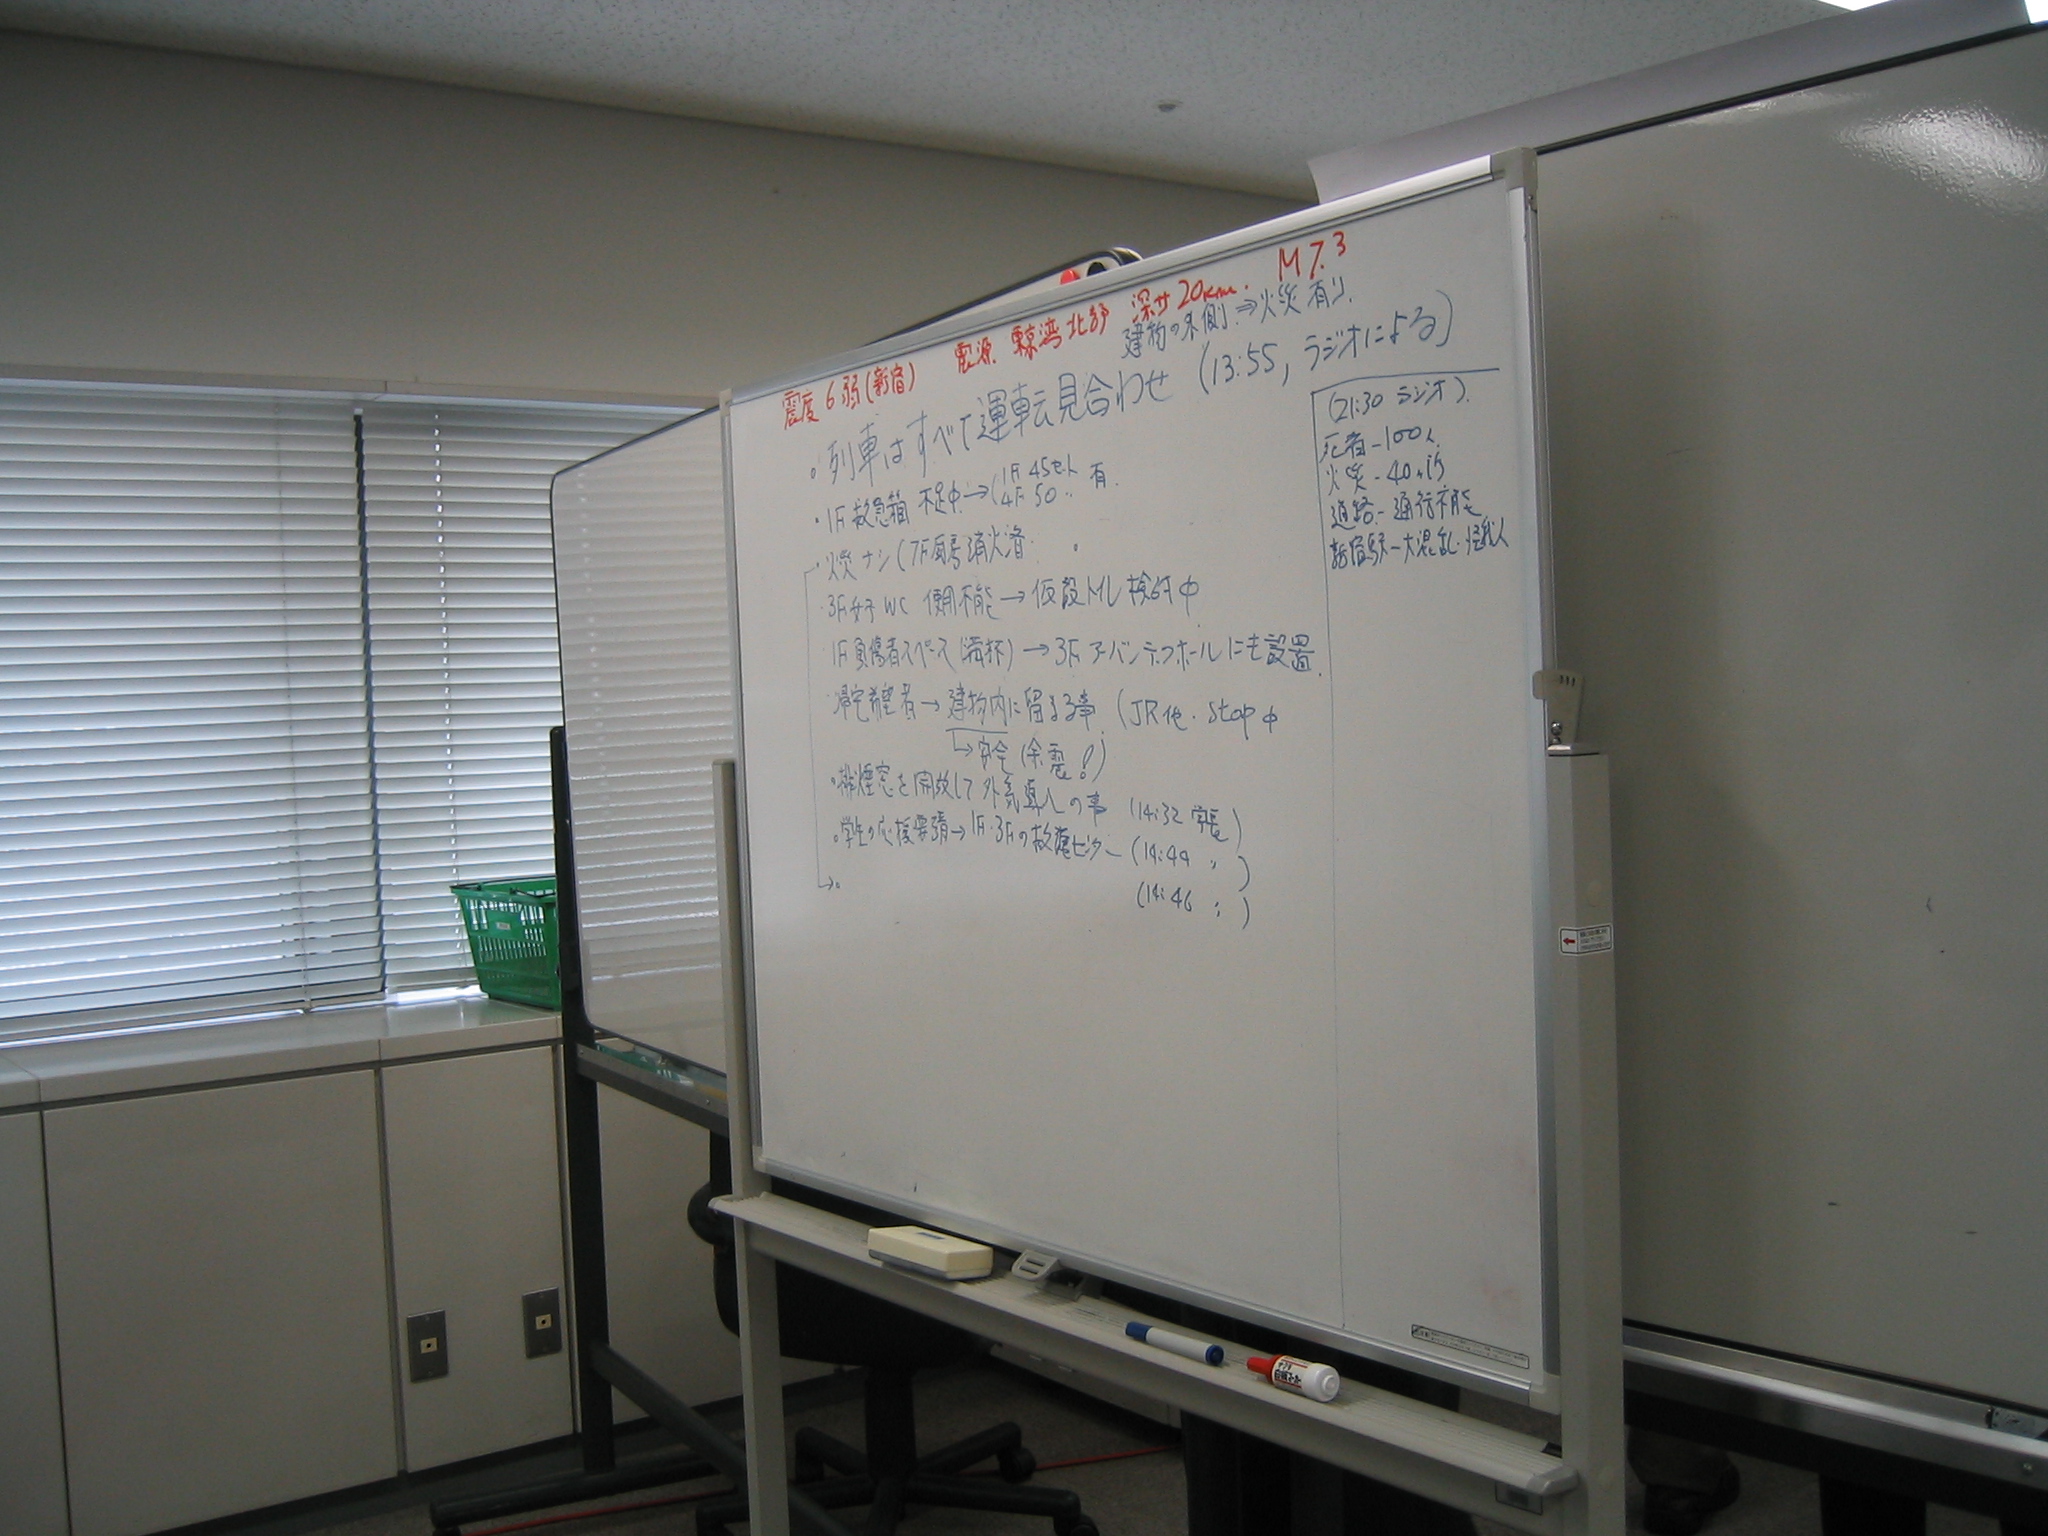 震度6弱(新宿) 震源 東京湾北部 深サ20km. M7.3
建物の外側⇒火災有り.
。列車はすべて運転見合わせ (13:55, ラジオによる)
・1F 救急箱 不足中→(1F 45セット 有.
4F 50 〃
・火災ナシ(7F厨房消火済.
・3F女子WC 使用不能→仮設トイレ検討中
・1F負傷者スペース(満杯)→3Fアーバンテックホールにも設置.
・帰宅希望者→建物内に留まる事 (JR他. stop中
↳安全(余震!)
。排煙窓を開放して外気導入の事 (14:32 学長)
。学生の応援要請→1F・3Fの救護センター (14:44 〃 )
(14:46 〃 )
(21:30 ラジオ).
死者-100人
火災-40ヶ所
道路-通行不能
新宿駅-大混乱・怪我人